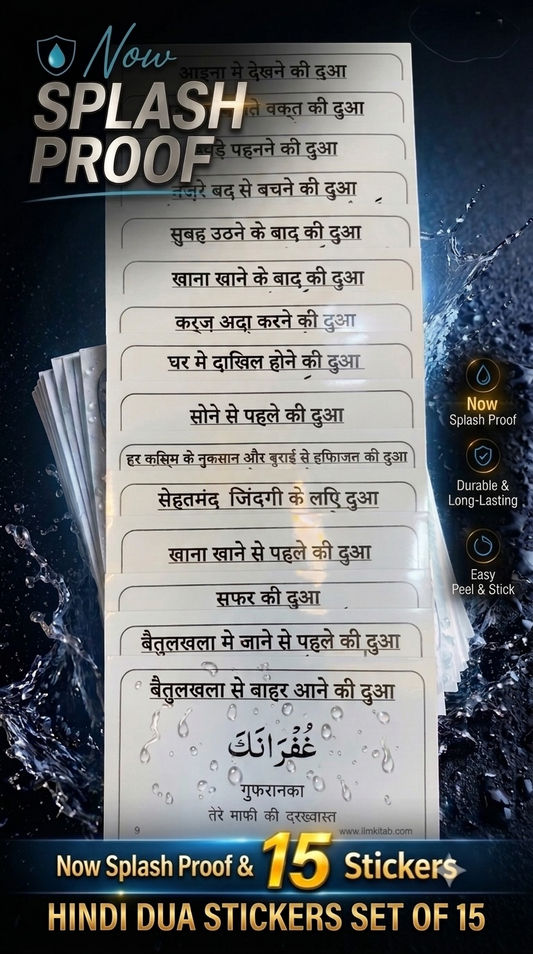 Now
SPLASH
PROOF
आइना मे देखने की दुआ
वक्त की दुआ
पहनने की दुआ
नज़रे बद से बचने की दुआ
सुबह उठने के बाद की दुआ
खाना खाने के बाद की दुआ
कर्ज़ अदा करने की दुआ
घर मे दाखिल होने की दुआ
सोने से पहले की दुआ
हर कसि्म के नुकसान और बुराई से हफिाजत की दुआ
सेहतमंद जिंदगी के लएि दुआ
खाना खाने से पहले की दुआ
सफर की दुआ
बैतुलखला मे जाने से पहले की दुआ
बैतुलखला से बाहर आने की दुआ
غُفْرَانَكَ
गुफरानका
तेरे माफी की दरख्वास्त
9
www.ilmkitab.com
Now
Splash Proof
Durable &
Long-Lasting
Easy
Peel & Stick
Now Splash Proof & 15 Stickers
HINDI DUA STICKERS SET OF 15